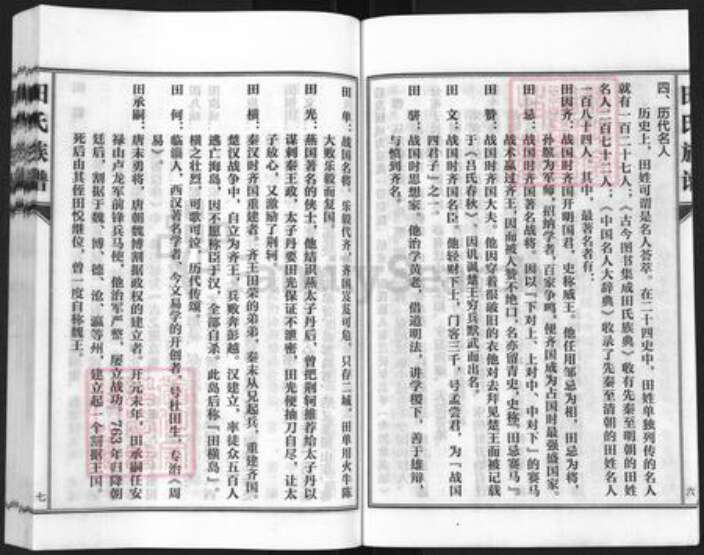 四、历代名人
历史上，田姓可谓是名人荟萃。在二十四史中，田姓单独列传的名人
就有一百二十七人；《古今图书集成田氏族典》收有先秦至明朝的田姓
名人二百七十三人；《中国名人大辞典》收录了先秦至清朝的田姓名人
一百八十四人，其中，最著名者有：
田因齐：战国时齐国开明国君，史称威王。他任用邹忌为相，田忌为将，
孙膑为军师，招纳学者，百家争鸣，使齐国成为占国时最强盛国家。
田 忌：战国时齐国著名战将。因以『下对上、上对中、中对下』的赛马
战术赢过齐王，因而被人赞不绝口，名亦留青史，史称『田忌赛马』。
田 赞：战国时齐国大夫。他因穿着很破旧的衣他对去拜见楚王而被记载
于《吕氏春秋》，因讥讽楚王穷兵黩武而出名。
田 文：战国时齐国名臣。他轻财下士，门客三千，号孟尝君，为『战国
四君子』之一。
田 骈：战国时思想家。他治学黄老，借道明法，讲学稷下，善于雄辩，
与慎到齐名。
田氏族谱
六
田 单：战国名将。乐毅代齐，齐国岌岌可危，只存二城，田单用火牛陈
大败乐毅而复国。
田 光：燕国著名的侠士，他结识燕太子丹后，曾把荆轲推荐给太子丹以
谋刺秦王政，太子丹要田光保证不泄密，田光便抽刀自尽，让太
子放心，又激励了荆轲。
田 横：秦汉时齐国重建者。齐王田荣的弟弟，秦末从兄起兵，重建齐国。
楚汉战争中，自立为齐王，兵败奔彭越。汉建立，率徒众五百人
逃亡海岛，因不愿称臣于汉，全部自杀。此岛后称『田横岛』。
横之壮烈，可歌可泣，历代传颂。
田 何：临淄人，西汉著名学者，今文易学的开创者，号杜田生。专治《周
易》
田承嗣：唐末勇将，唐朝魏博割据政权的建立者。开元末年，田承嗣任安
禄山卢龙军前锋兵马使，他治军严整，屡立战功。763年归降朝
廷后，割据于魏、博、德、沧、瀛等州，建立起一个割据王国，
死后由其侄田悦继位，曾一度自称魏王。
田氏族谱
七